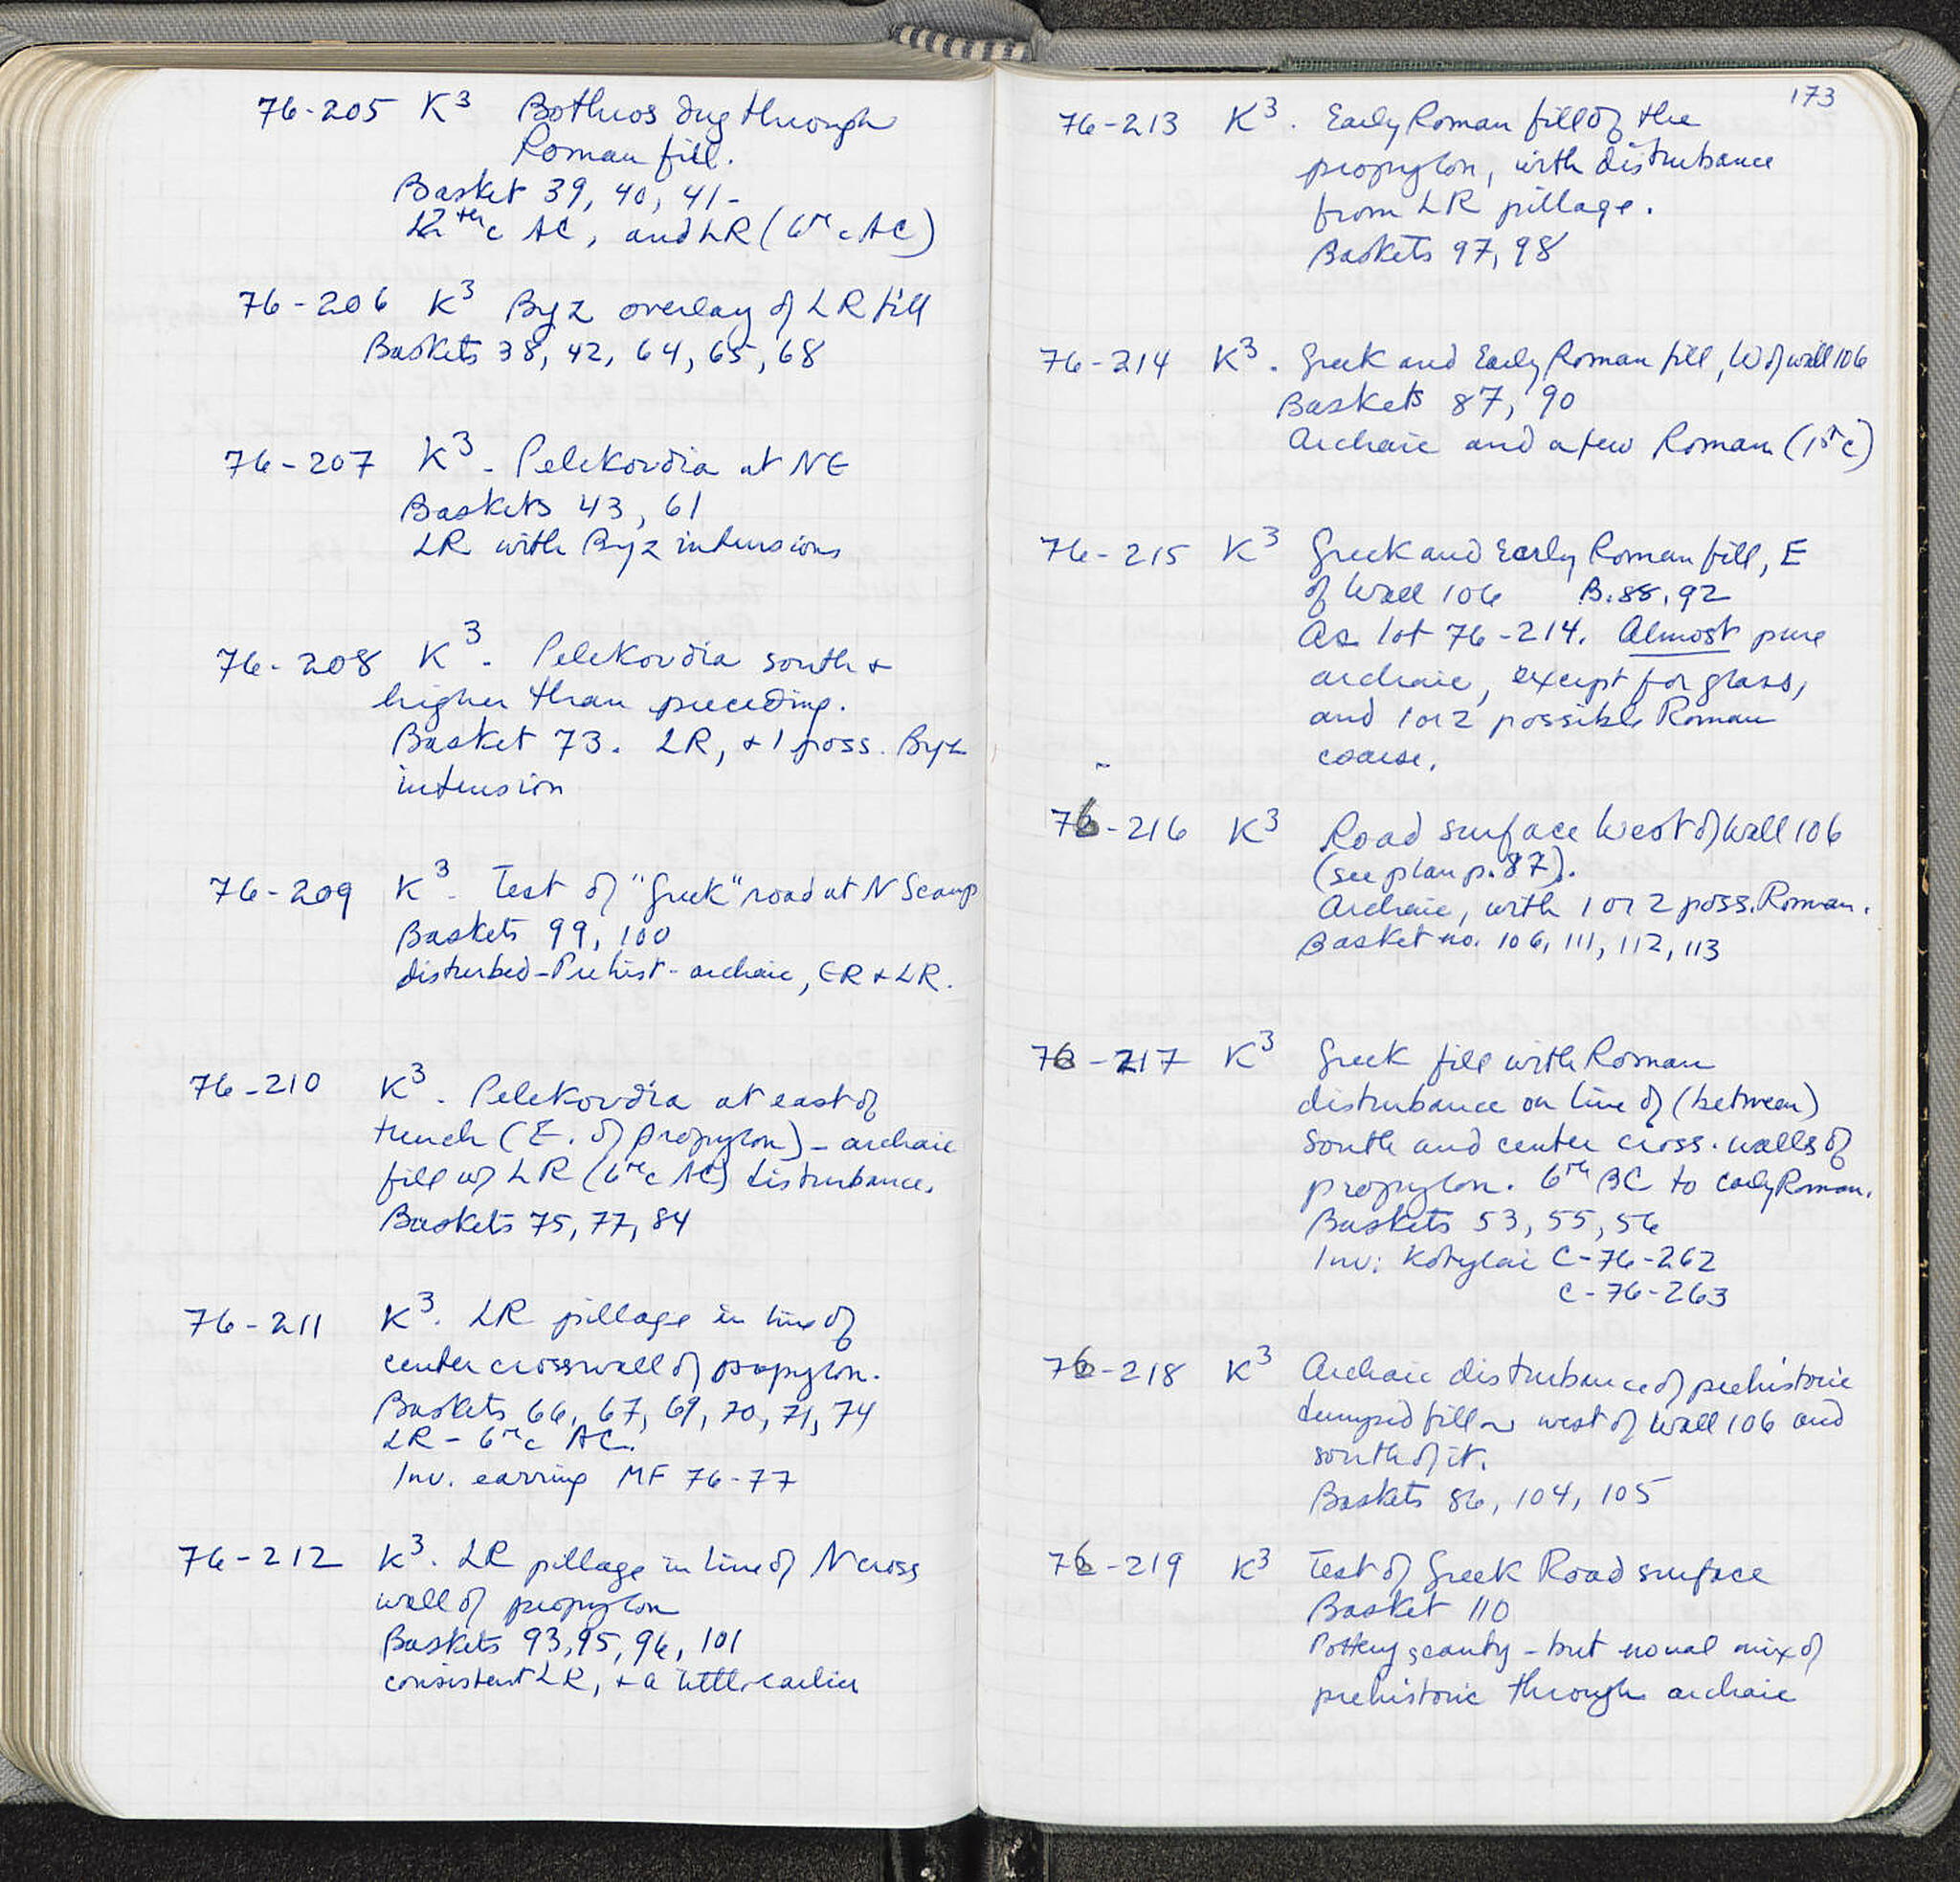 76-205 K³ Bothros dug through
Roman fill.
Basket 39, 40, 41-
12th c AC, and LR (6th c AC)
76-206 K³ Byz overlay of LR fill
Baskets 38, 42, 64, 65, 68
76-207 K³- Pelekoudia at NE
Baskets 43, 61
LR with Byz intrusions
76-208 K³- Pelekoudia south +
higher than preceding.
Basket 73. LR, + 1 poss. Byz
intrusion
76-209 K³- Test of "Greek" road at N Scarp
Baskets 99, 100
disturbed-Prehist-archaic, ER + LR.
76-210 K³- Pelekoudia at east of
trench (E. of propylon) - archaic
fill w/ LR (6th c AC) disturbance.
Baskets 75, 77, 84
76-211 K³. LR pillage in line of
center crosswall of propylon.
Baskets 66, 67, 69, 70, 71, 74
LR - 6th c AC.
Inv. earring MF 76-77
76-212 K³. LR pillage in line of N cross
wall of propylon
Baskets 93, 95, 96, 101
consistent LR, + a little earlier
173
76-213 K³. Early Roman fill of the
propylon, with disturbance
from LR pillage.
Baskets 97, 98
76-214 K³. Greek and Early Roman fill, W of wall 106
Baskets 87, 90
Archaic and a few Roman (1st c)
76-215 K³ Greek and Early Roman fill, E
of Wall 106 B: 88, 92
As lot 76-214. Almost pure
archaic, except for glass,
and 1 or 2 possible Roman
coarse.
76-216 K³ Road surface West of Wall 106
(see plan p. 87).
Archaic, with 1 or 2 poss. Roman.
Basket no. 106, 111, 112, 113
76-217 K³ Greek fill with Roman
disturbance on line of (between)
South and center cross-walls of
propylon. 6th BC to early Roman.
Baskets 53, 55, 56
Inv: Kotylai C-76-262
C-76-263
76-218 K³ Archaic disturbance of prehistoric
dumped fill west of Wall 106 and
south of it.
Baskets 86, 104, 105
76-219 K³ Test of Greek Road surface
Basket 110
Pottery scanty - but usual mix of
prehistoric through archaic